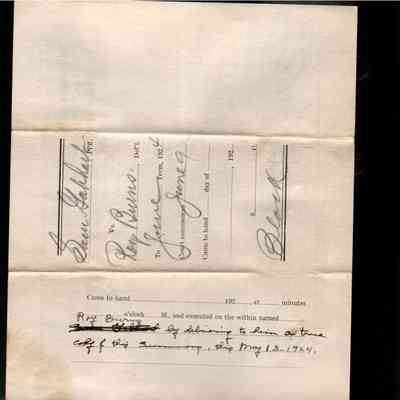 Sam Gephart
Pltf.
Vs.
Roy Burns. Deft.
To June Term, 1924
June 9
Came to hand day of
192
Black
Came to hand 192 at minutes
o'clock M., and executed on the within named
Roy Burns
by delivering to him a true
copy of this summons, this May 12-1924.